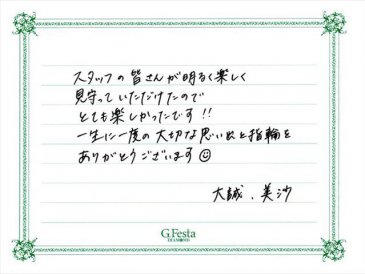 スタッフの皆さんが明るく楽しく
見守っていただけたので
とても楽しかったです!!
一生に一度の大切な思い出と指輪を
ありがとうございます☺
大誠、美沙
G.Festa
DIAMOND